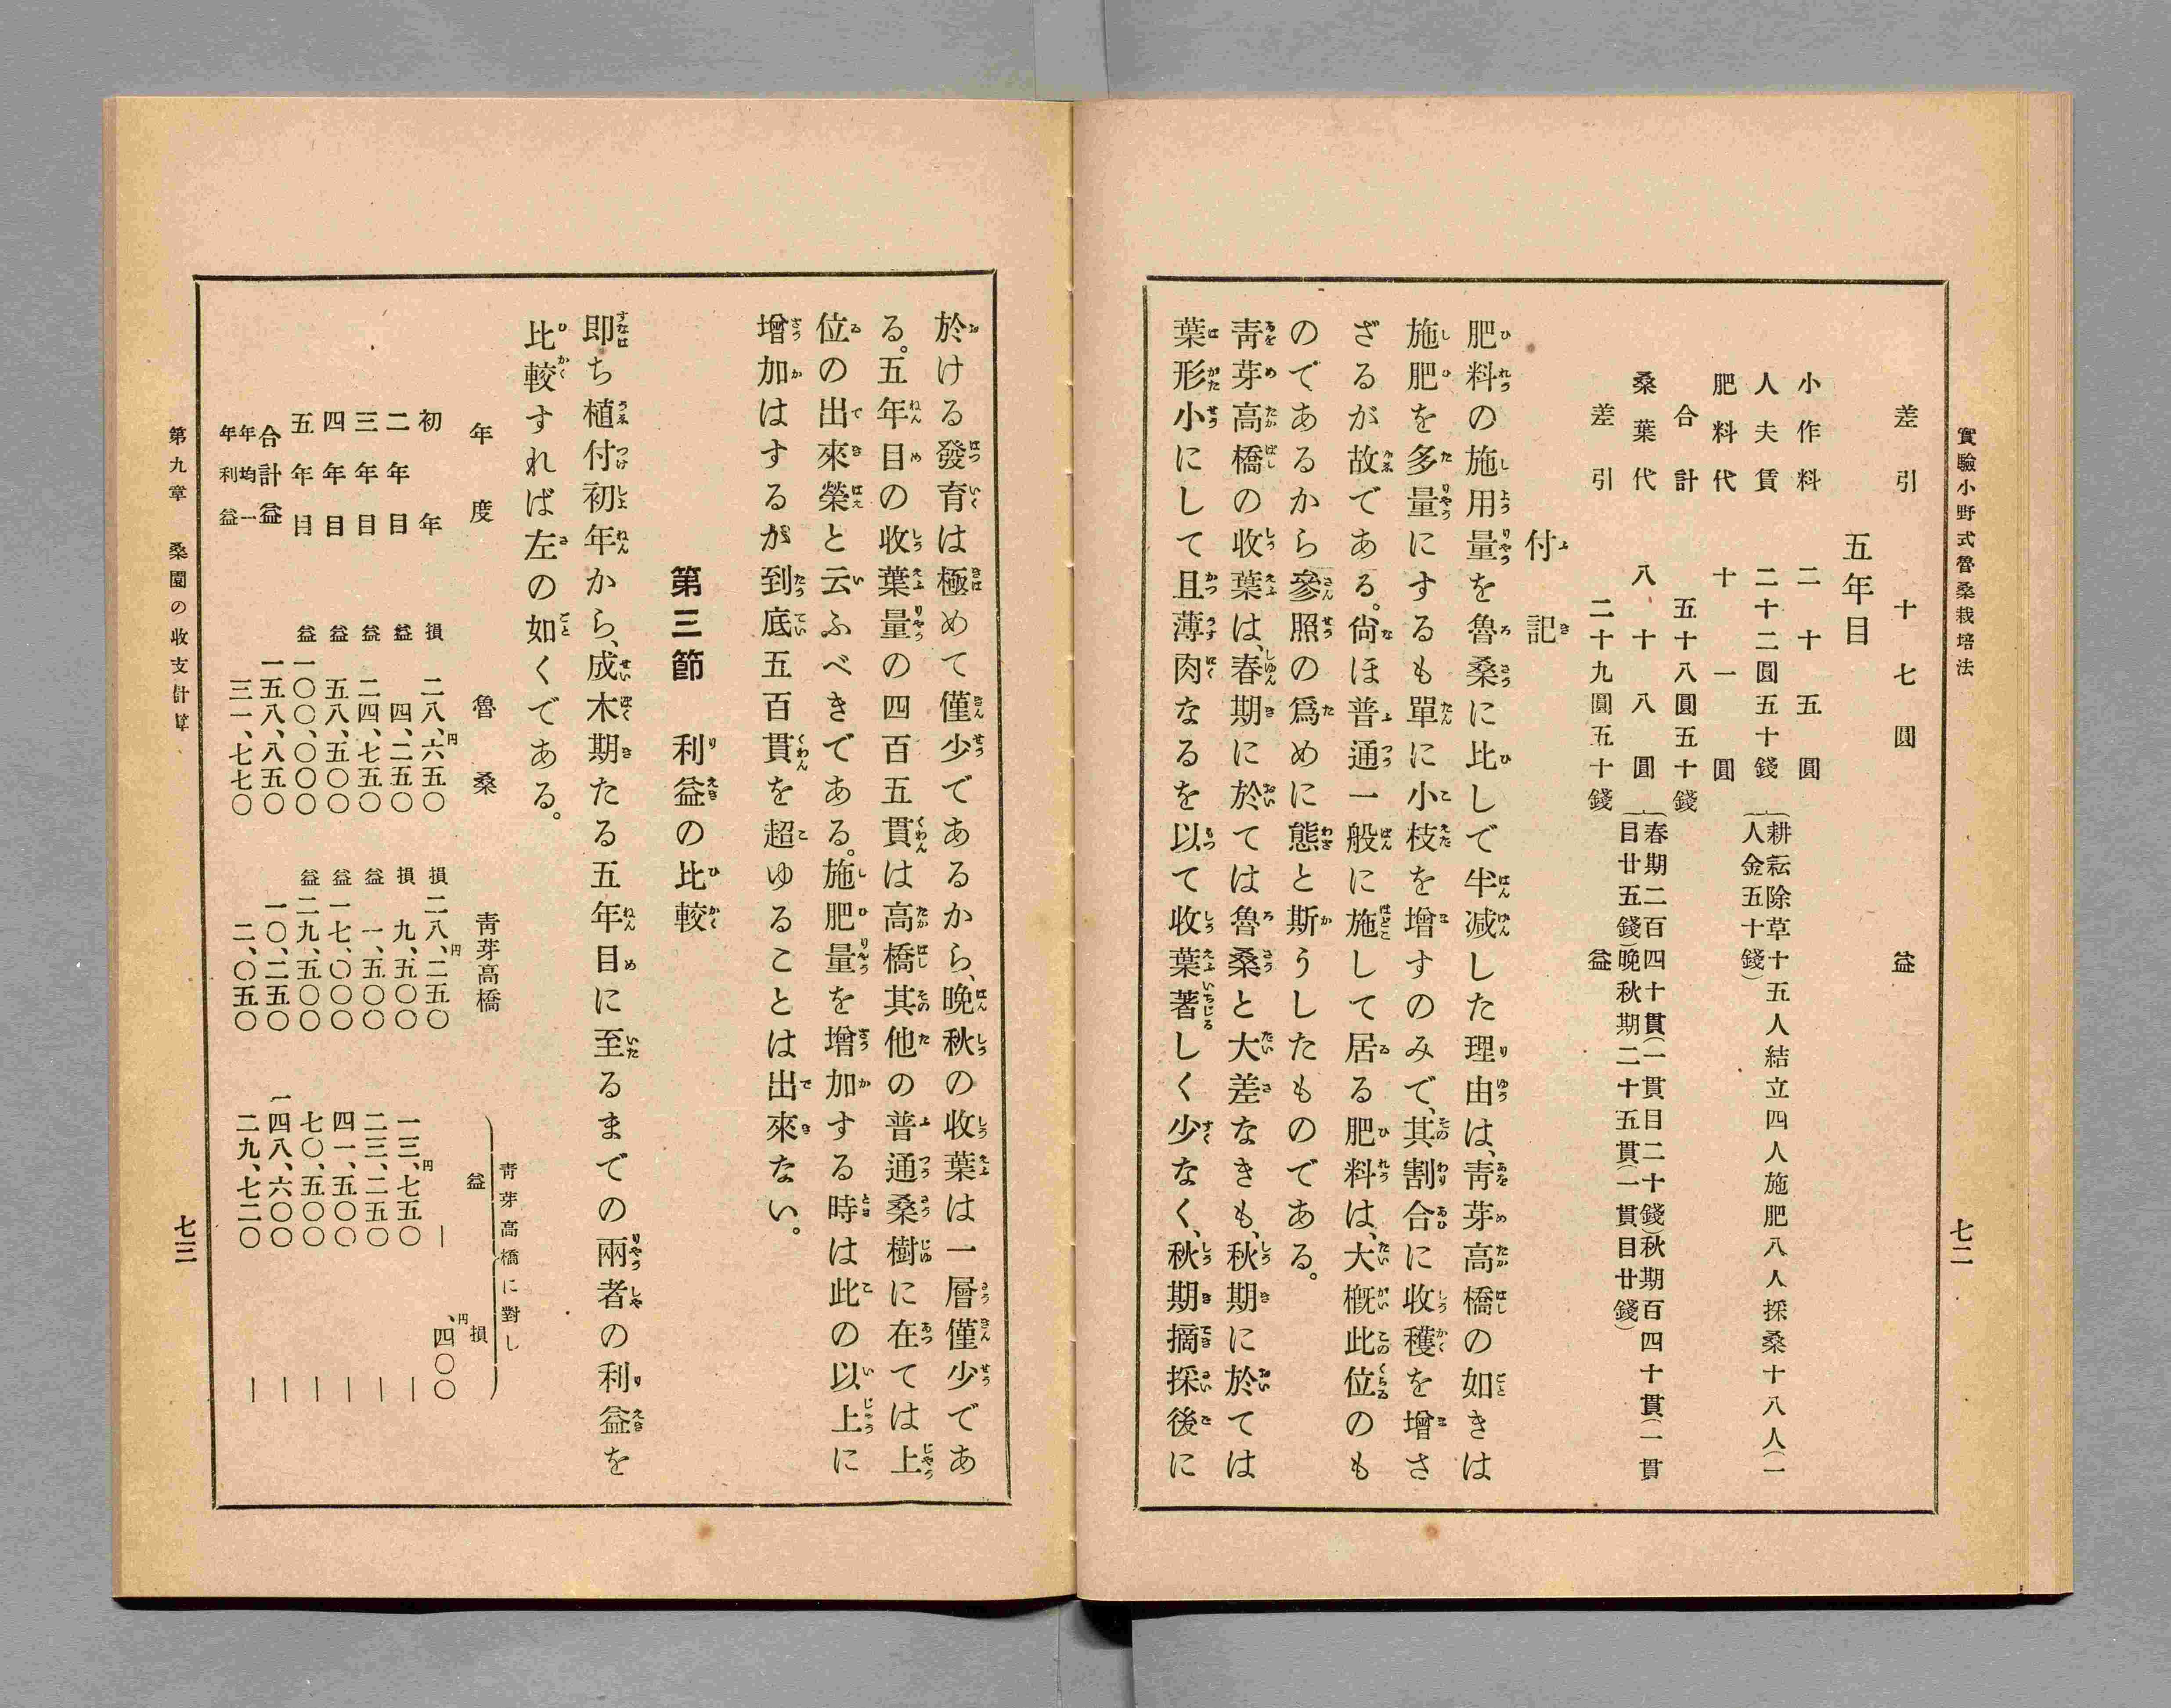 實驗小野式魯桑栽培法
七二
差引 十七圓 益
五年目
小作料 二十五圓
人夫賃 二十二圓五十錢 (耕耘除草十五人結立四人施肥八人採桑十八人(一人金五十錢)
肥料代 十一圓
合計 五十八圓五十錢
桑葉代 八十八圓 (春期二百四十貫(一貫目二十錢)秋期百四十貫(一貫目廿五錢)晩秋期二十五貫(一貫目廿錢)
差引 二十九圓五十錢 益
付記
肥料の施用量を魯桑に比しで半減した理由は、靑芽高橋の如きは
施肥を多量にするも單に小枝を增すのみで、其割合に收穫を增さ
ざるが故である。尙ほ普通一般に施して居る肥料は、大槪此位のも
のであるから參照の爲めに態と斯うしたものである。
靑芽高橋の收葉は、春期に於ては魯桑と大差なきも、秋期に於ては
葉形小にして且薄肉なるを以て收葉著しく少なく、秋期摘採後に
於ける發育は極めて僅少であるから、晩秋の收葉は一層僅少であ
る。五年目の收葉量の四百五貫は高橋其他の普通桑樹に在ては上
位の出來榮と云ふべきである。施肥量を增加する時は此の以上に
增加はするが到底五百貫を超ゆることは出來ない。
第三節 利益の比較
卽ち植付初年から、成木期たる五年目に至るまでの兩者の利益を
比較すれば左の如くである。
年度 魯桑 靑芽高橋 靑芽高橋に對し 益 損
初年 損 二八、六五〇円 損 二八、二五〇円 — 、四〇〇円
二年目 益 四、二五〇 損 九、五〇〇 一三、七五〇円 —
三年目 益 二四、七五〇 益 一、五〇〇 二三、二五〇 —
四年目 益 五八、五〇〇 益 一七、〇〇〇 四一、五〇〇 —
五年目 益 一〇〇、〇〇〇 益 二九、五〇〇 七〇、五〇〇 —
合計益 一五八、八五〇 一〇、二五〇 一四八、六〇〇 —
年均一年利益 三一、七七〇 二、〇五〇 二九、七二〇 —
第九章 桑園の收支計算
七三